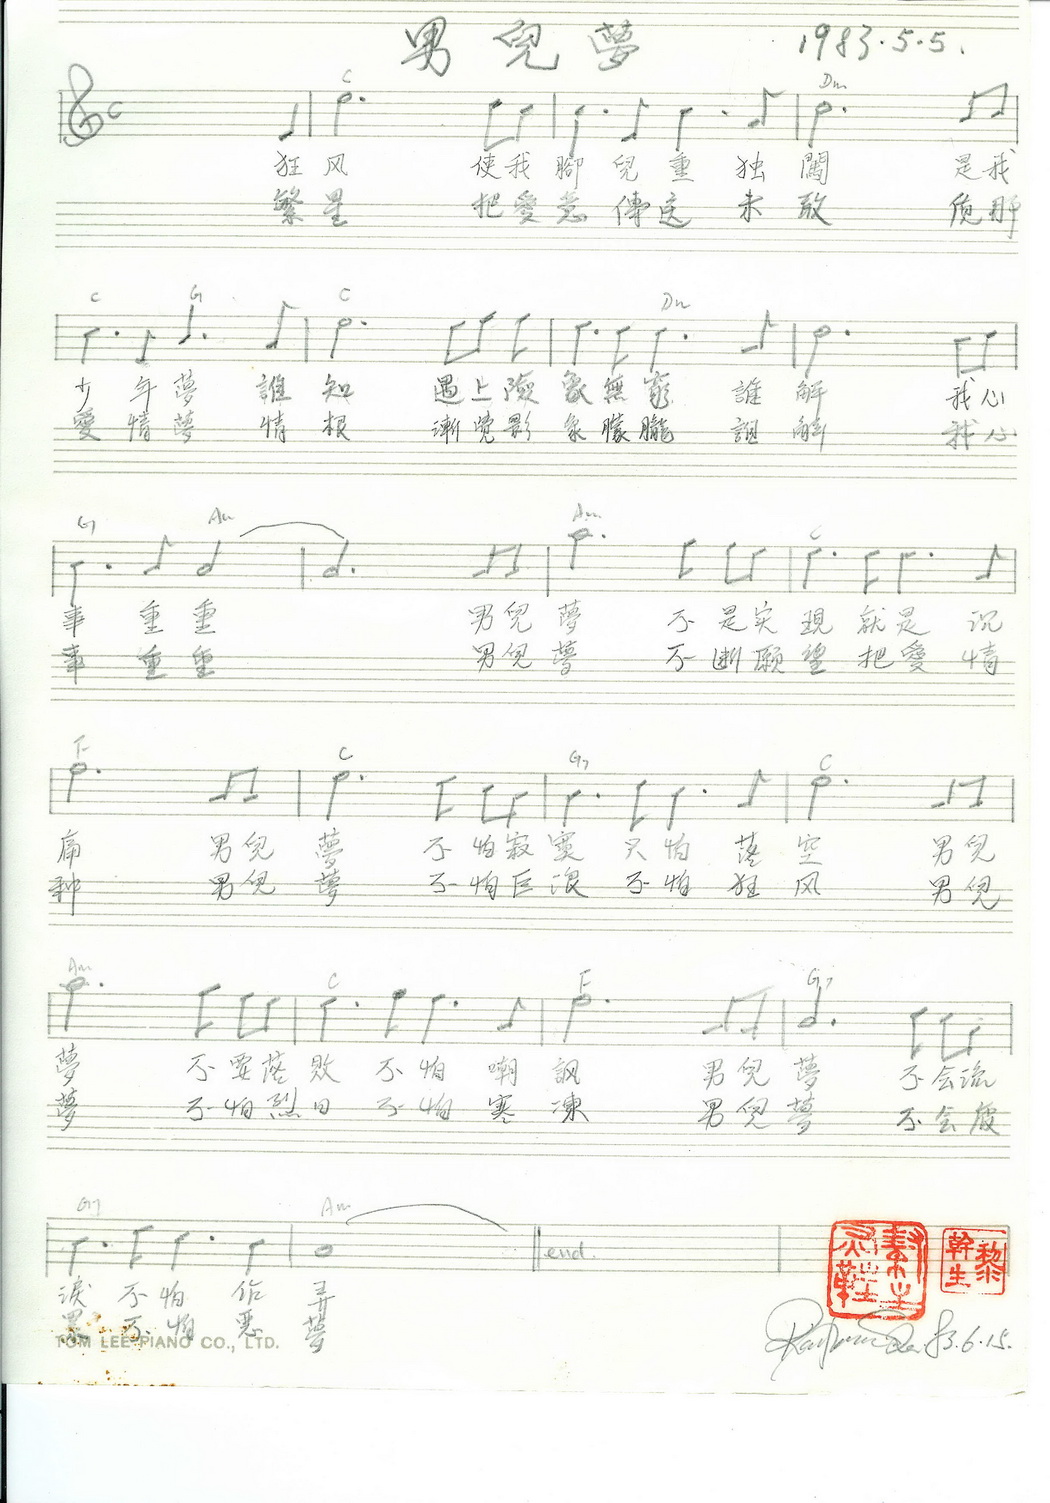 男兒夢 1983.5.5.
C Dm
狂风 使我腳兒重 独闖 是我
繁星 把愛意傳送 未敢 做那
C G C Dm
少年夢 誰知 遇上險象無窮 誰解 我心
愛情夢 情根 漸覺影象朦朧 誰解 我心
G7 Am Am C
事重重 男兒夢 不是实現就是沉
事重重 男兒夢 不断願望把愛情
F C G7 C
痛 男兒夢 不怕寂寞只怕落空 男兒
种 男兒夢 不怕巨浪不怕狂风 男兒
Am C F G7
夢 不要落敗不怕嘲諷 男兒夢 不会流
夢 不怕烈日不怕寒凍 男兒夢 不会疲
G7 Am
淚不怕作弄 end.
累不怕惡夢
TOM LEE PIANO CO., LTD.
黎幹生
83.6.15.